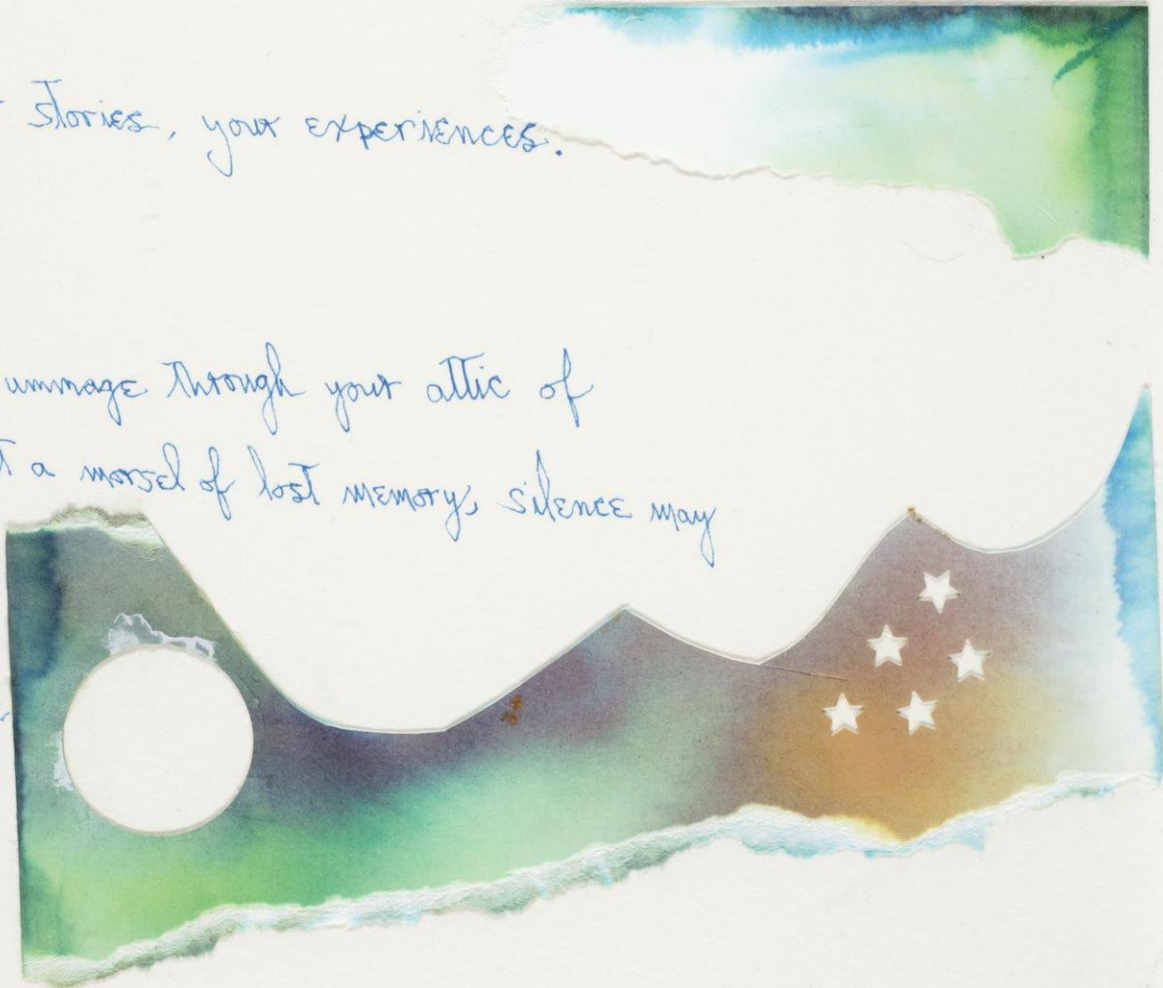 stories, your experiences.
ummage through your attic of
t a morsel of lost memory, silence may